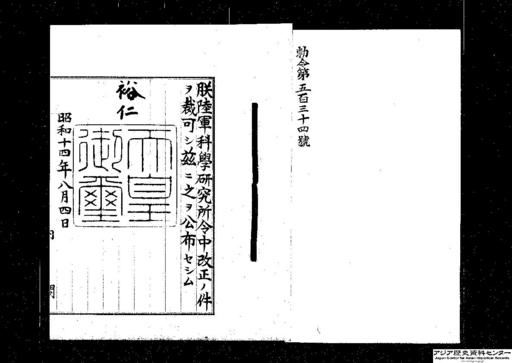 勅令第五百三十四號
朕陸軍科學研究所令中改正ノ件
ヲ裁可シ茲ニ之ヲ公布セシム
裕仁
天皇
御璽
昭和十四年八月四日
内
閣
アジア歴史資料センター
Japan Center for Asian Historical Records